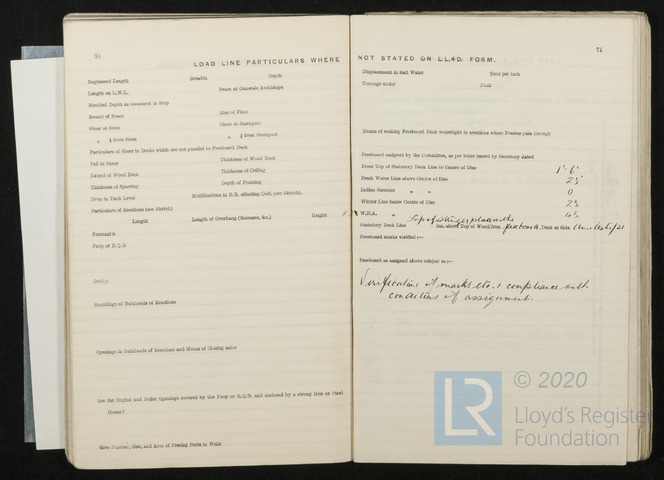 LOAD LINE PARTICULARS WHERE
Registered Length Breadth Depth
Length on L.W.L. Beam at Gunwale Amidships
Moulded Depth as measured in Ship
Round of Beam Rise of Floor
Sheer at Stem Sheer at Sternpost
" ⅛ from Stem " ⅛ from Sternpost
Particulars of Sheer in Decks which are not parallel to Freeboard Deck
Fall in Sheer Thickness of Wood Deck
Extent of Wood Deck Thickness of Ceiling
Thickness of Sparring Depth of Framing
Drop in Tank Level Modifications in D.B. affecting Coef. (see Sketch).
Particulars of Erections (see Sketch)
Length Length of Overhang (Recesses, &c.) Height
Forecastle
Poop or R.Q.D
Bridge
Scantlings of Bulkheads of Erections
Openings in Bulkheads of Erections and Means of Closing same
Are the Engine and Boiler Openings covered by the Poop or R.Q.D. and enclosed by a strong Iron or Steel
House?
Give Number, Size, and Area of Freeing Ports in Wells
71
NOT STATED ON LL.4D. FORM.
Displacement in Salt Water Tons per inch
Tonnage under Deck
Means of making Freeboard Deck watertight in erections where Frames pass through
Freeboard assigned by the Committee, as per letter issued by Secretary dated
From Top of Statutory Deck Line to Centre of Disc 1'-6"
Fresh Water Line above Centre of Disc 2½
Indian Summer " " 0
Winter Line below Centre of Disc 2½
W.N.A. " 4½
Top of
Statutory Deck Line ins. above Top of Wood/Iron Deck at Side Amidships
Freeboard marks verified :—
Freeboard as assigned above subject to :—
Verification of marks etc. + compliance with
conditions of assignment.
LR
© 2020
Lloyd's Register
Foundation